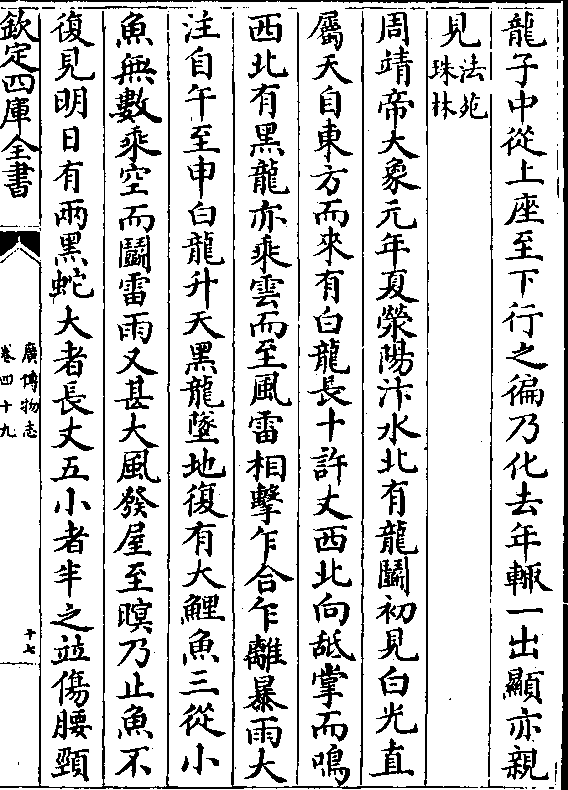 龍子中從上座至下行之徧乃化去年輙一出顯亦親
見法苑珠林
周靖帝大象元年夏滎陽汴水北有龍鬭初見白光直
屬天自東方而來有白龍長十許丈西北向舐掌而鳴
西北有黑龍亦乘雲而至風雷相擊乍合乍離暴雨大
注自午至申白龍升天黑龍墜地復有大鯉魚三從小
魚無數乘空而鬭雷雨又甚大風發屋至暝乃止魚不
復見明日有兩黑蛇大者長丈五小者半之竝傷腰頸
欽定四庫全書
廣博物志
卷四十九
十七